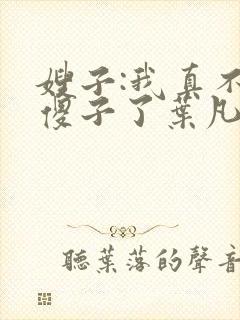 嫂子:我真不
傻子了葉凡
聽葉落的聲音